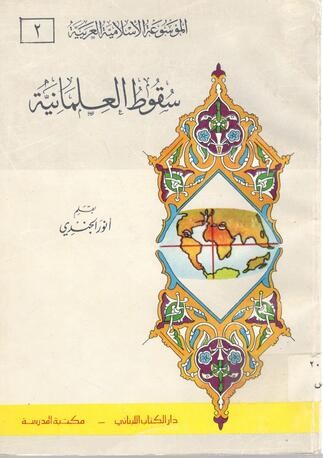 الموسوعة الإسلامية العربية
٢
سقوط العلمانية
بقلم
أنور الجندي
٢٠
دار الكتاب اللبناني - مكتبة المدرسة